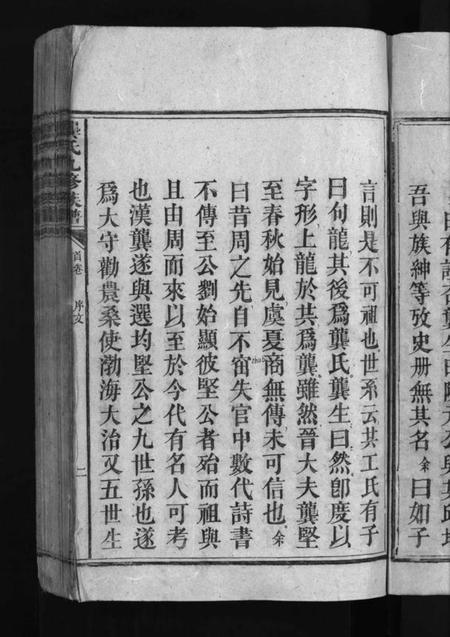 吾與族紳等攷史册無其名余曰如子
言則是不可祖也世系云共工氏有子
曰句龍其後爲龔氏龔生曰然卽度以
字形上龍於共爲龔雖然晉大夫龔堅
至春秋始見虞夏商無傳未可信也余
曰昔周之先自不窋失官中數代詩書
不傳至公劉始顯彼堅公者殆而祖與
且由周而來以至於今代有名人可考
也漢龔遂與選均堅公之九世孫也遂
爲大守勸農桑使渤海大治又五世生
龔氏九修族譜
首卷 序文
二